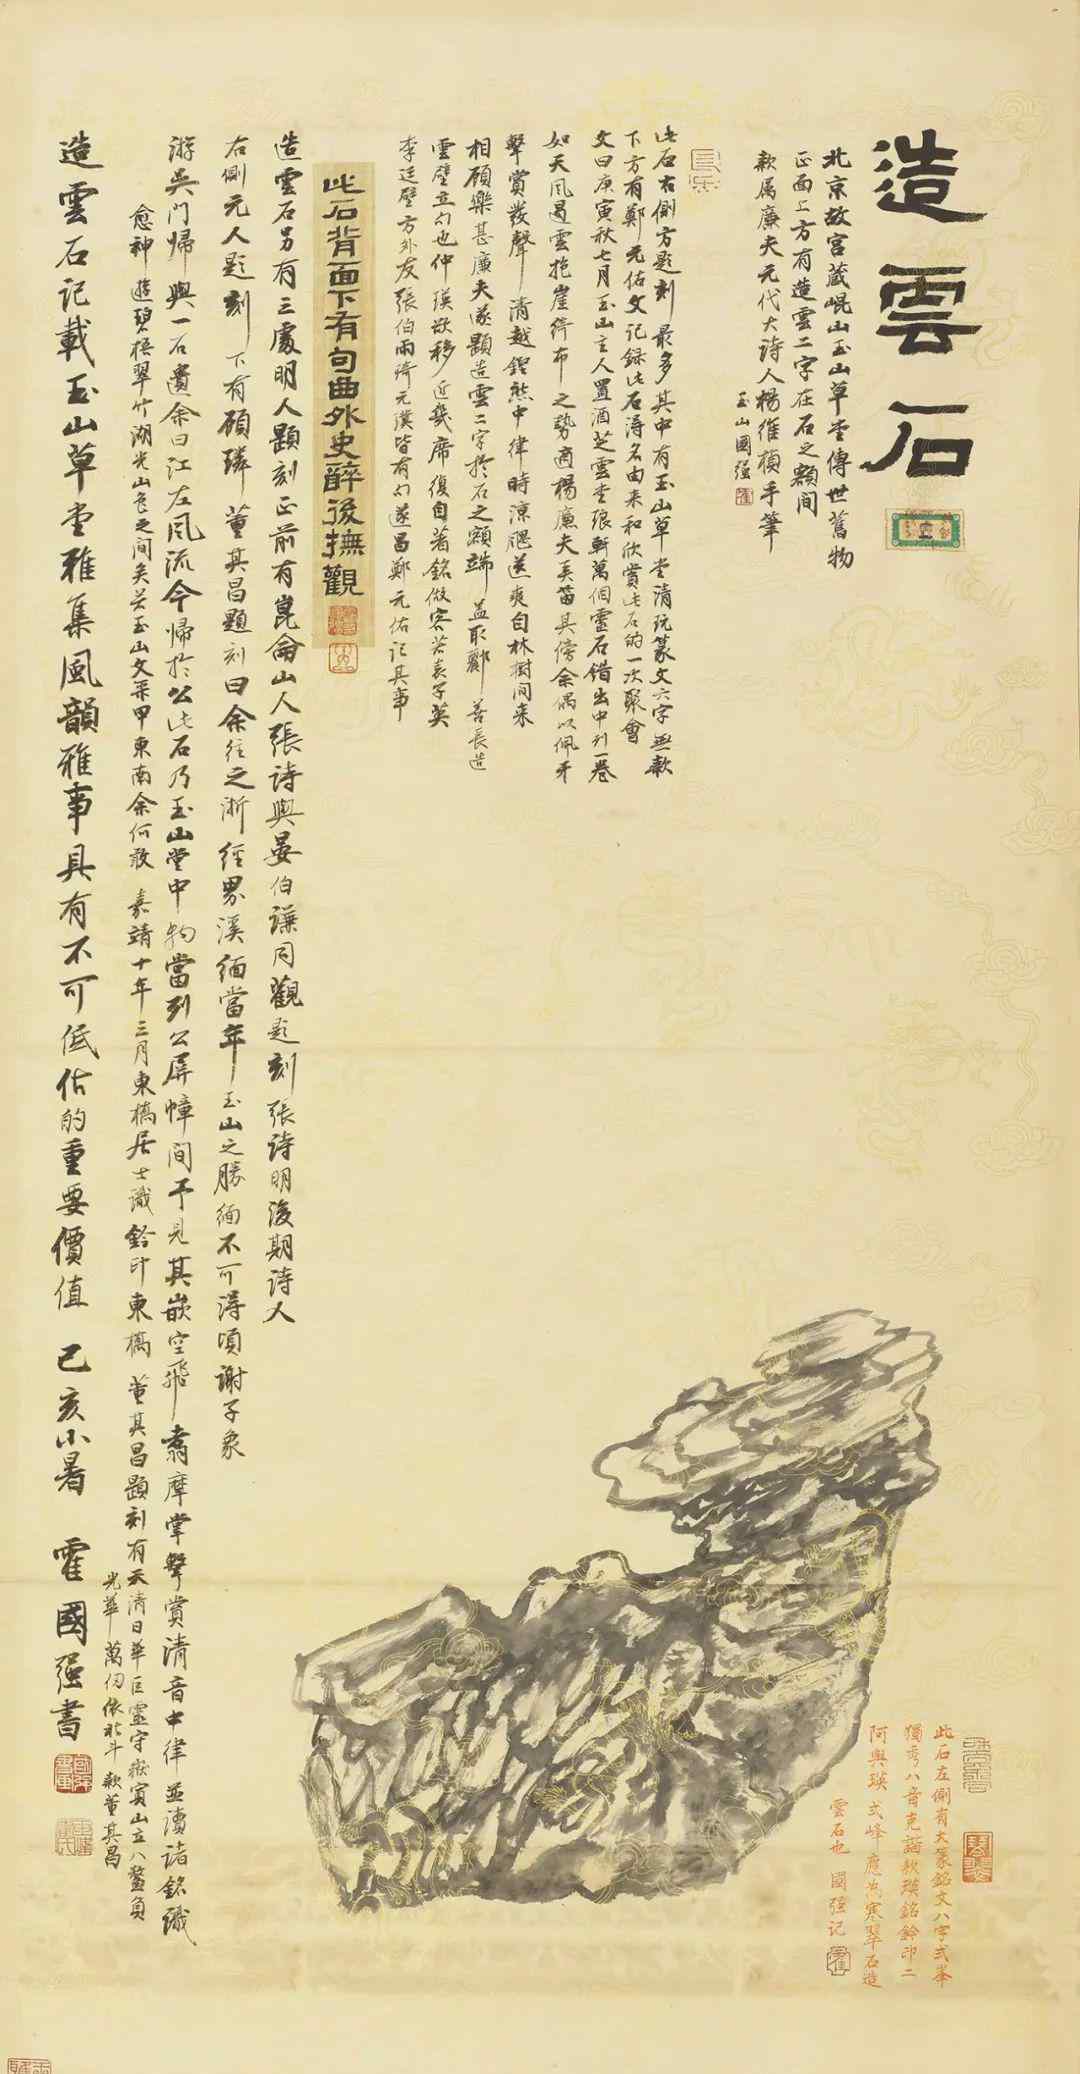 造雲石
北京故宫蔵崐山玉山草堂傳世舊物
正面上方有造雲二字在石之額间
款属廉夫元代大诗人楊維楨手筆
玉山國强
此石右側方题刻最多其中有玉山草堂清玩篆文六字無款
下方有鄭元佑文记録此石得名由来和欣赏此石的一次聚會
文曰庚寅秋七月玉山主人置酒芝雲堂琅軒萬個靈石错出中列一卷
如天風遏雲抱崖俯布之勢適楊廉夫吴笛具傍余偶以佩牙
擊賞發聲清越鏗然中律時涼飔送爽自林樹间来
相顾樂甚廉夫遂題造雲二字於石之額端益取酈善長造
雲壁立句也仲瑛欲移近几席復自著銘做客若袁子英
李廷壁方外友张伯雨倚元璞皆有句遂昌鄭元佑记其事
此石背面下有句曲外史醉後撫觀
造雲石另有三處明人題刻正前有崑侖山人張诗與晏伯謙同觀题刻張诗明後期诗人
右側元人题刻下有顾璘董其昌題刻曰余往之浙經界溪缅當年玉山之勝缅不可得頃謝子象
游吴門归與一石遺余曰江左風流今歸於公此石乃玉山堂中物當列公屏幛间予見其嵌空飛翥摩掌擊赏清音中律並讀诸銘識
愈神遊碧梧翠竹湖光山色之间矣若玉山文采甲東南余何敢 嘉靖十年三月東橋居士識鈐印東橋 董其昌題刻有天清日華巨靈守嶽寅山立八鰲負
光華萬仞依北斗 款董其昌
造雲石记載玉山草堂雅集風韻雅事具有不可低估的重要價值 己亥小暑 霍國强書
此石左側有大篆銘文八字式峯
獨秀八音克諧款瑛銘鈐印二
阿與瑛 式峰應為寒翠石造
雲石也 國强记